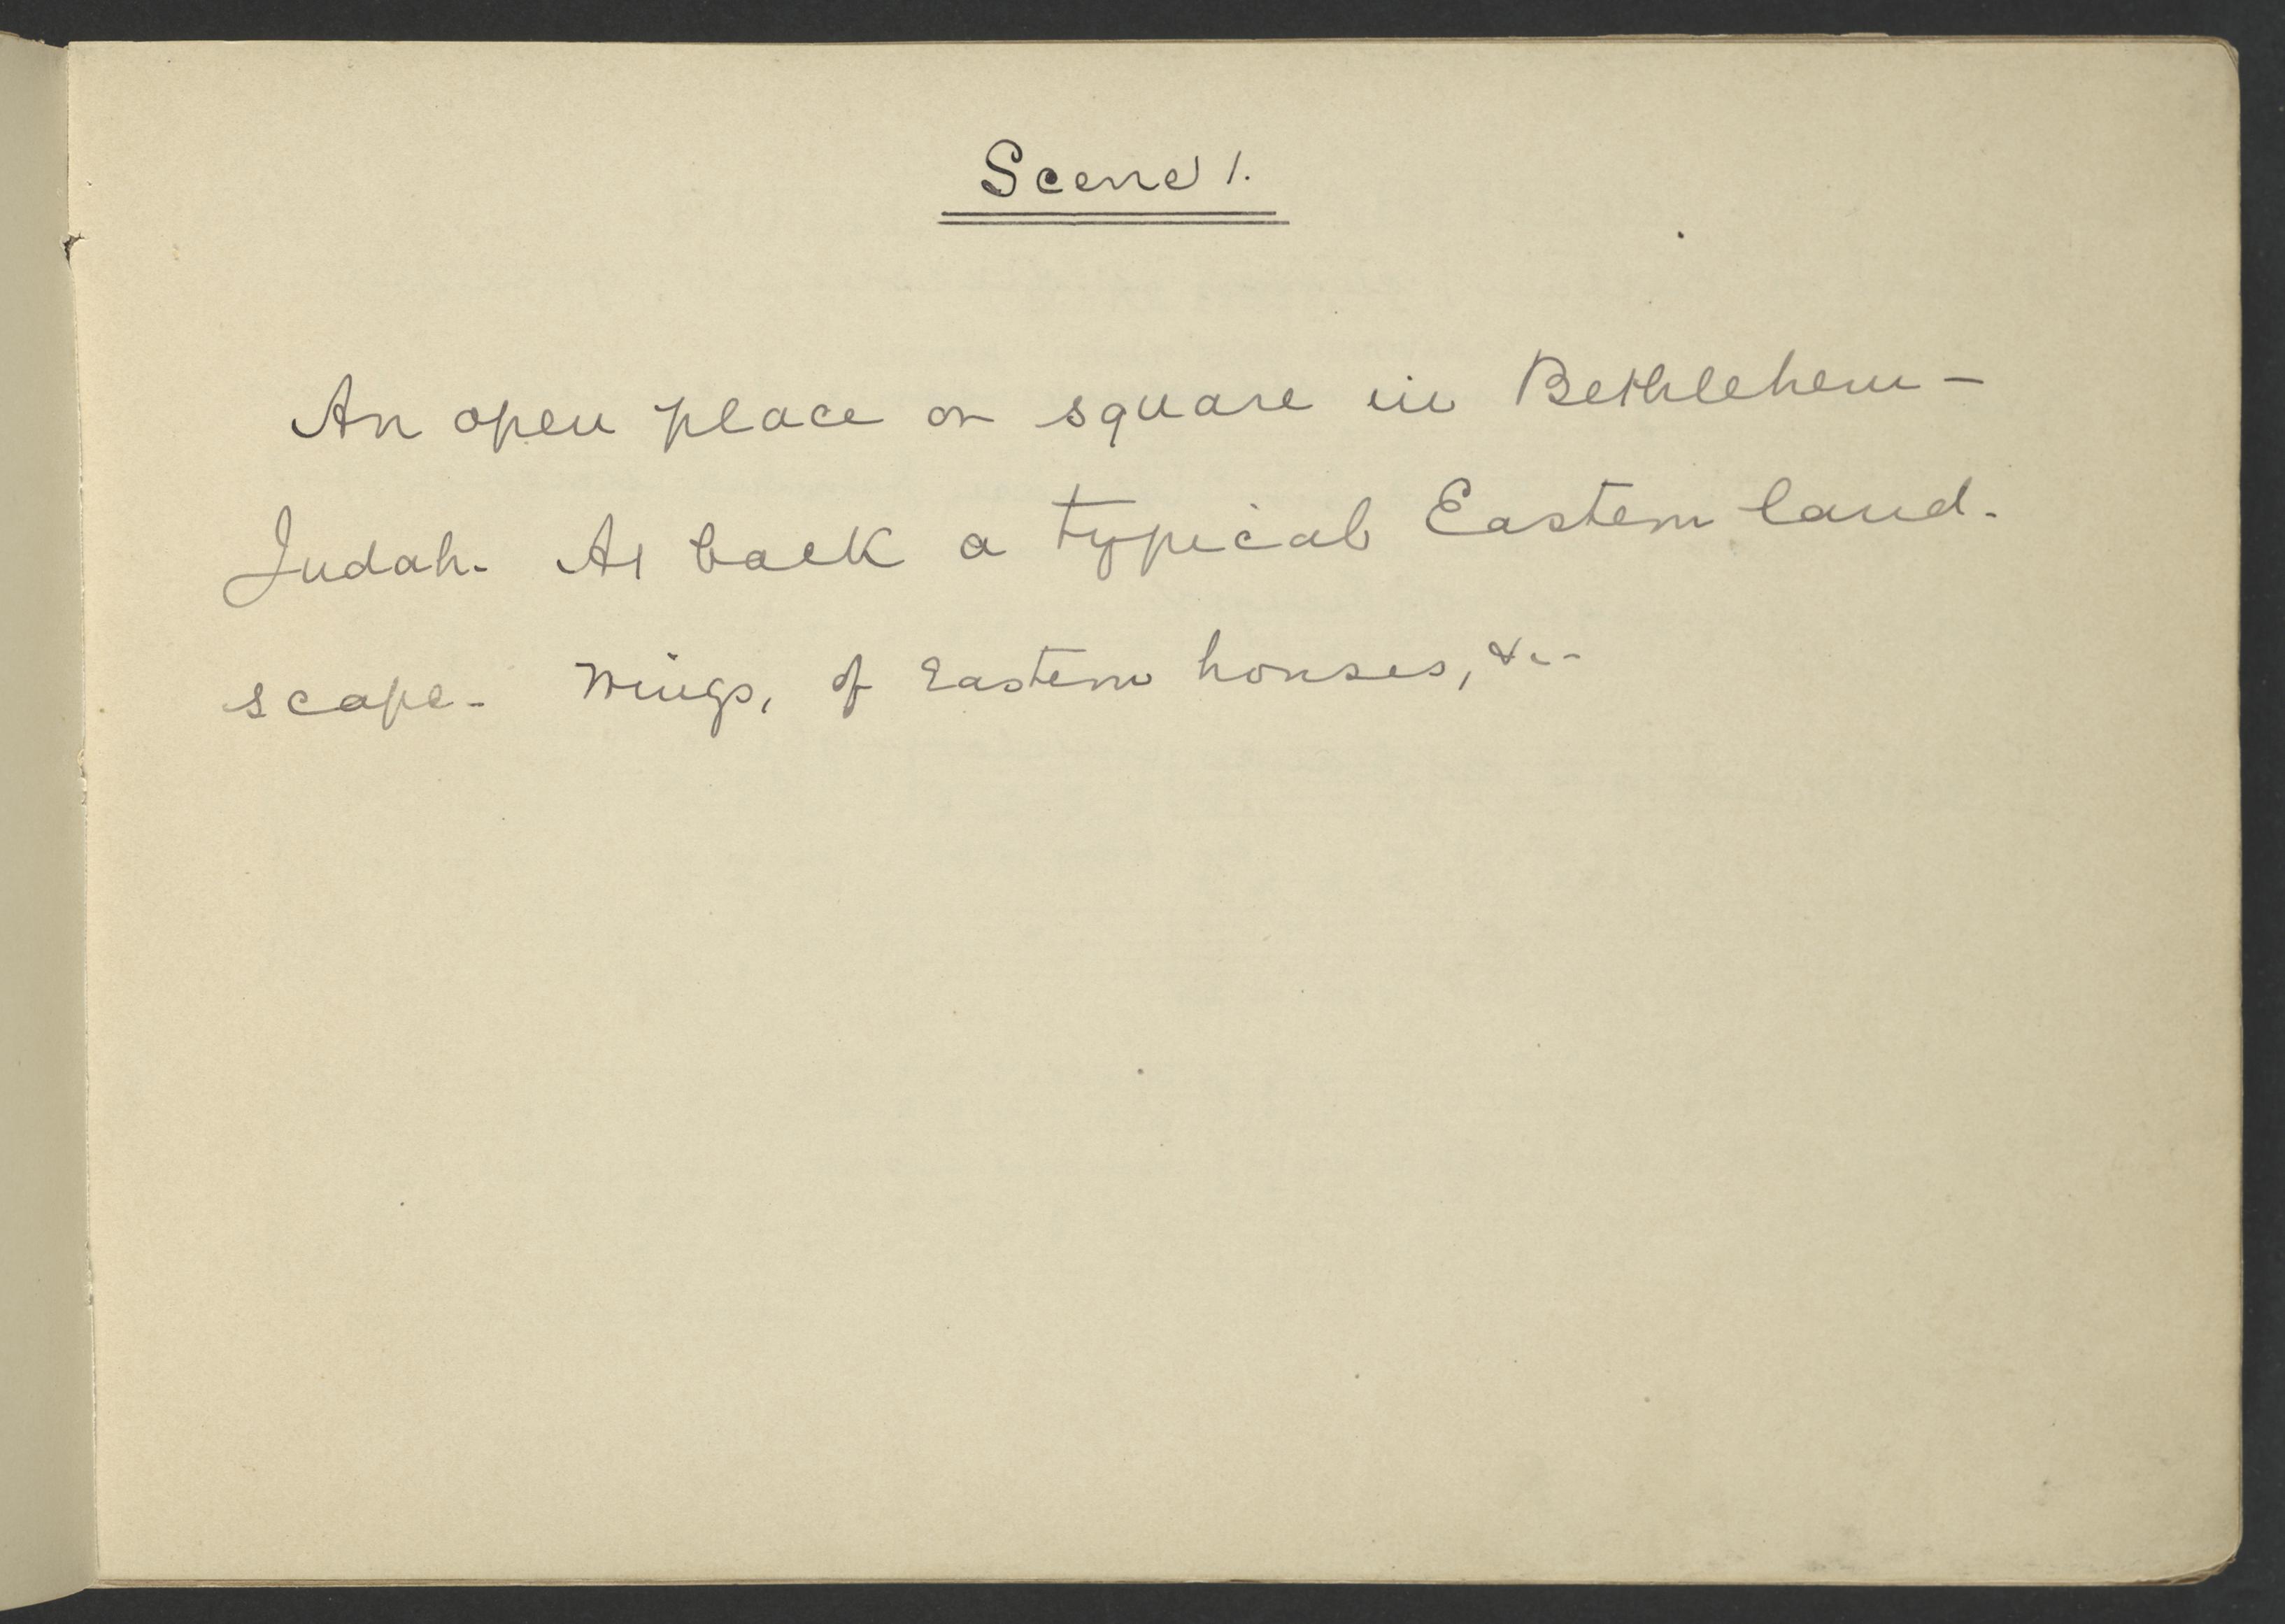 Scene 1.
An open place or square in Bethlehem -
Judah. At back a typical Eastern land-
scape. Wings, of Eastern houses, &c.